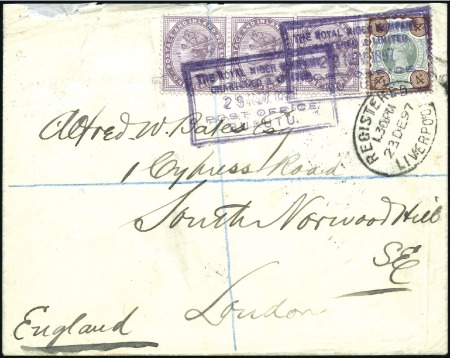 THE ROYAL NIGER COMPANY
CHARTERED & LIMITED
1897
THE ROYAL NIGER COMPANY
CHARTERED & LIMITED
29
POST OFFICE
REGISTERED
23 DE 97
LIVERPOOL
Alfred W. Bates Esq
1 Cypress Road
South Norwood Hill
SE
London
England